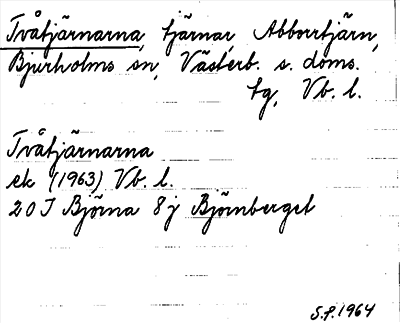 Tvåtjärnarna, tjärnar, Abborrtjärn,
Bjurholms sn, Västerb. s. doms.
tg, Vb. l.
Tvåtjärnarna
ek (1963) Vb. l.
20 I Björna 8 j Björnberget
S.P. 1964